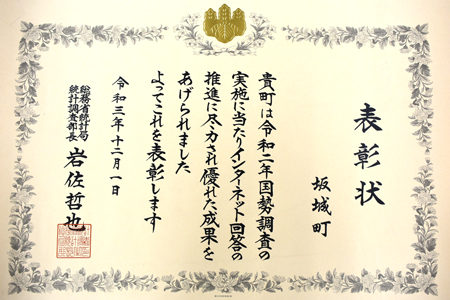 表彰状
坂城町
貴町は令和二年国勢調査の
実施に当たりインターネット回答の
推進に尽力され優れた成果を
あげられました
よってこれを表彰します
令和三年十二月一日
総務省統計局
統計調査部長
岩佐哲也